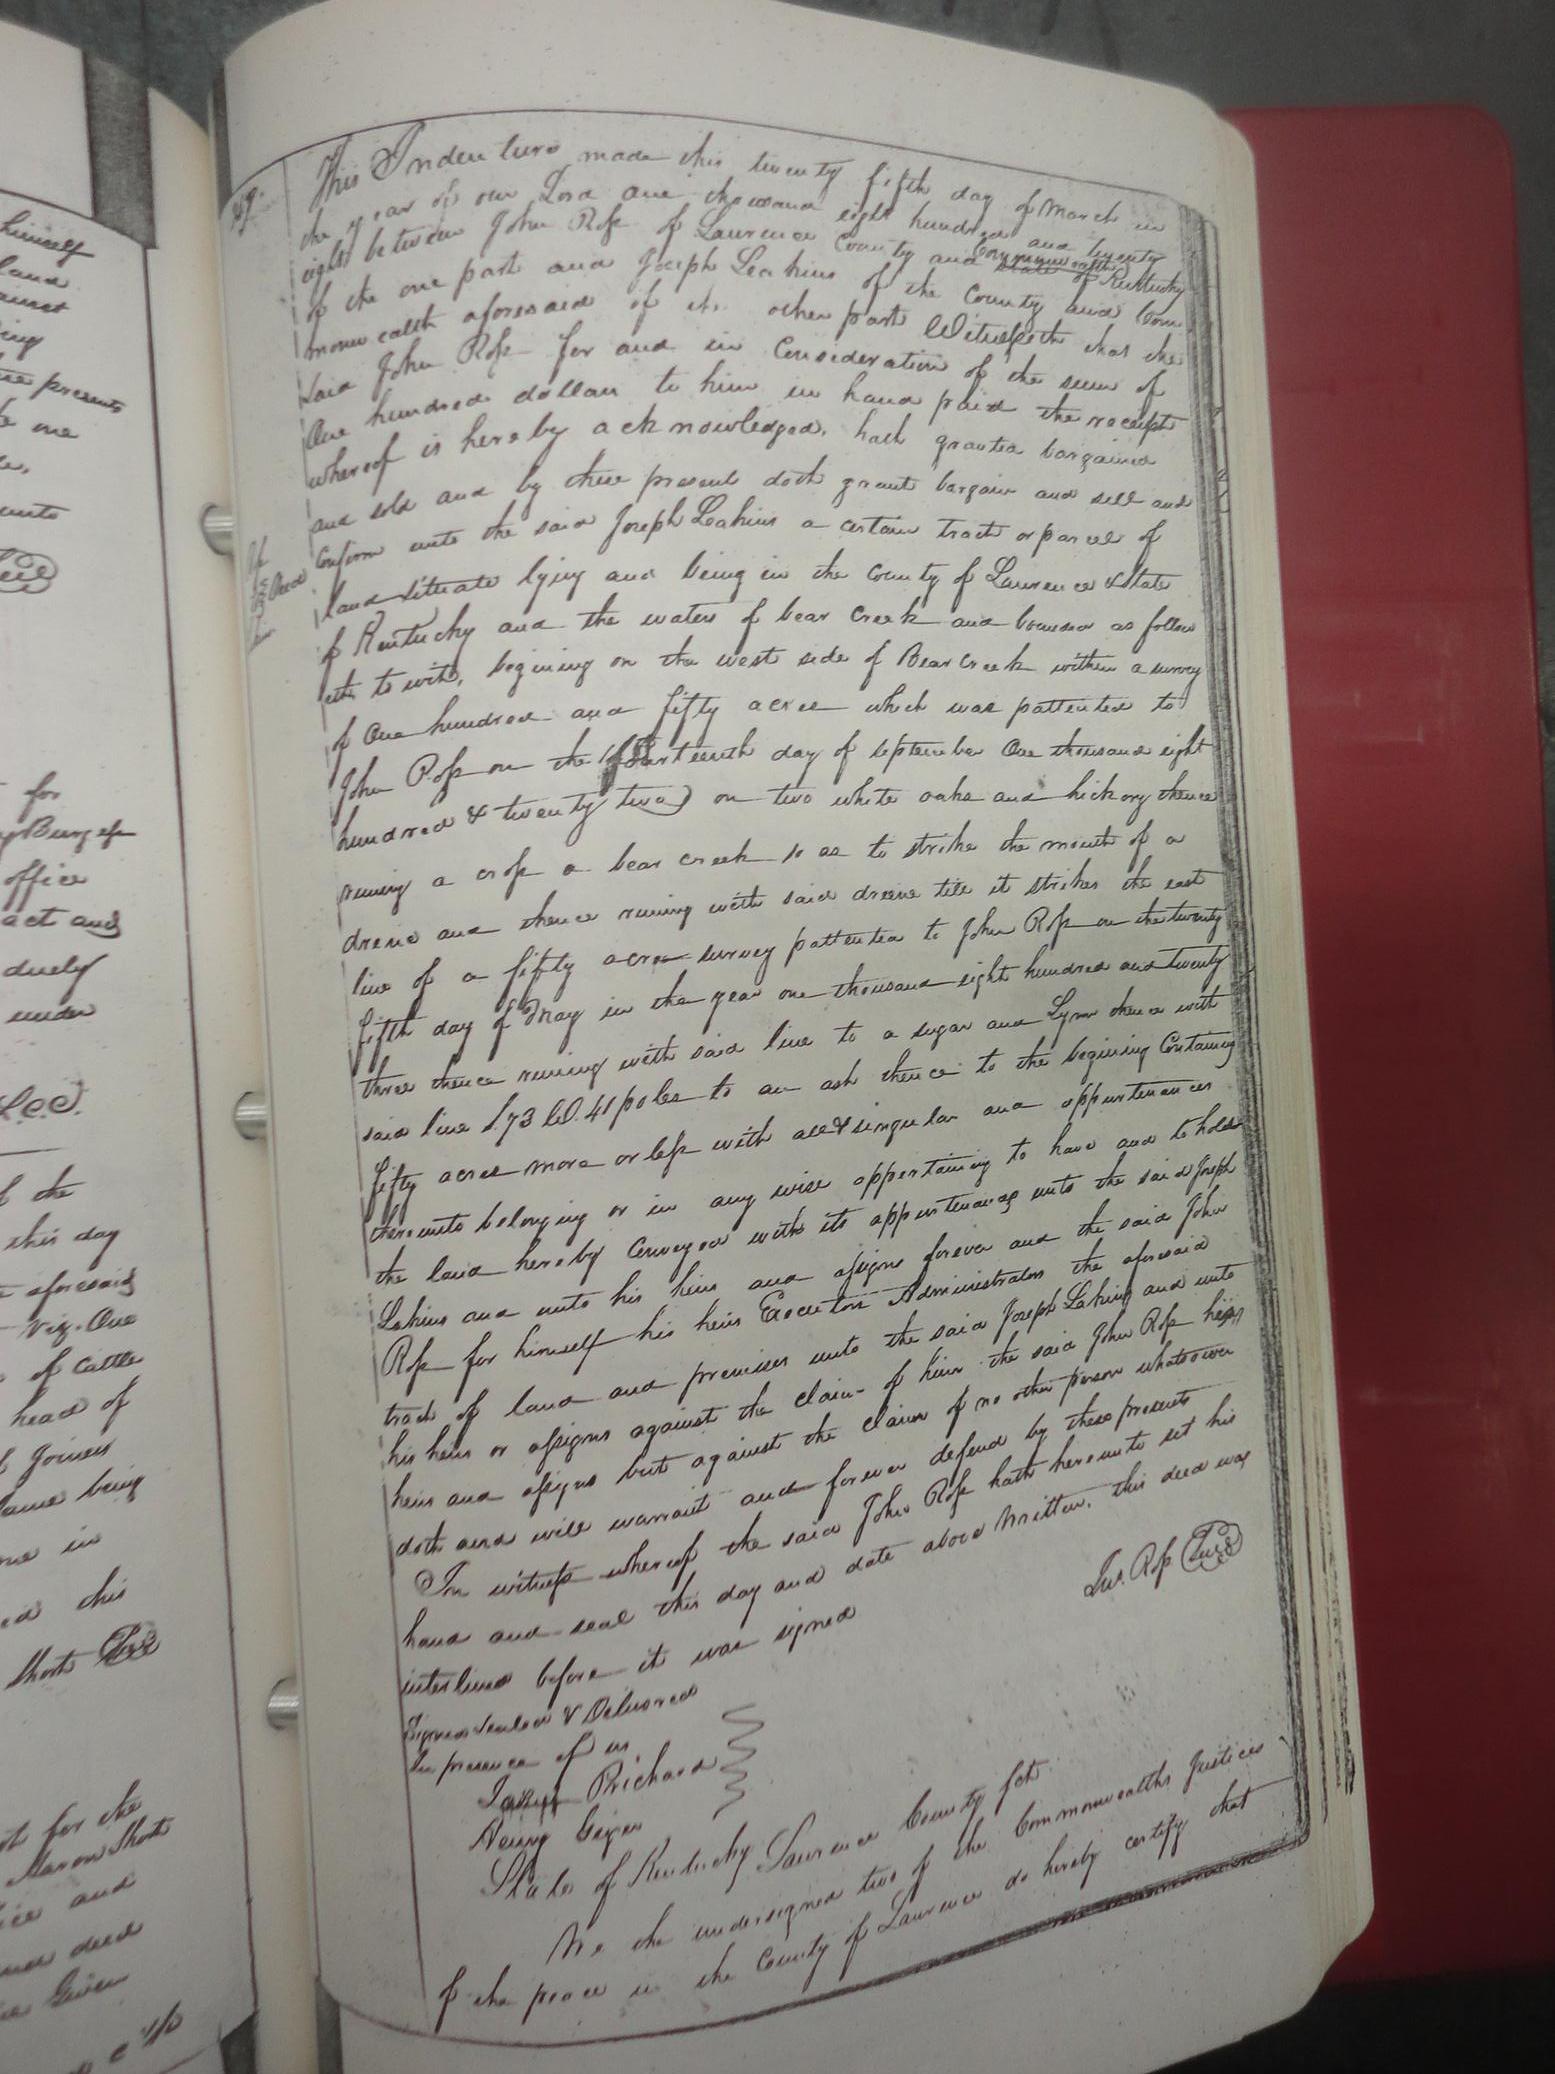 himself
land
against
being
these presents
the one
unto
Seal
for
Burgess
office
act and
duely
under
L.C.C.
of the
this day
aforesaid
viz. One
of cattle
head of
Joiners
same being
in
this
Short Seal
for the
Aaron Short
and
deed
Given
This Indenture made this twenty fifth day of March in
the year of our Lord one thousand eight hundred and twenty
eight between John Ross of Lawrence County and Commonwealth of Kentucky
of the one part and Joseph Leakins of the County and Com
monwealth aforesaid of the other part Witnesseth that the
said John Ross for and in Consideration of the sum of
One hundred dollars to him in hand paid the receipt
whereof is hereby acknowledged, hath granted bargained
and sold and by these presents doth grant bargain and sell and
Confirm unto the said Joseph Leakins a certain tract or parcel of
land situate lying and being in the County of Lawrence & state
of Kentucky and the waters of bear Creek and bounded as follow
eth to wit, begining on the west side of Bear Creek within a survey
of One hundred and fifty acres which was pattented to
John Ross on the fourteenth day of September One thousand eight
hundred & twenty two) on two white oaks and hickory thence
runing a cross a bear creek so as to strike the mouth of a
drene and thence runing with said dreene till it strikes the east
line of a fifty acre survey pattented to John Ross on the twenty
fifth day of May in the year one thousand eight hundred and twenty
three thence runing with said line to a sugar and Lynn thence with
said line S.73 W. 41 poles to an ash thence to the begining Containing
fifty acres more or less with all & singular and appurtenances
thereunto belonging or in any wise appertaining to have and to hold
the land hereby Conveyed with its appurtenances unto the said Joseph
Lakins and unto his heirs and assigns forever and the said John
Ross for himself his heirs Executors Administrators the aforesaid
tract of land and premises unto the said Joseph Lakins and unto
his heirs or assigns against the claim of him the said John Ross heirs
heirs and assigns but against the claim of no other person whatsoever
doth and will warrant and forever defend by these presents
In witness whereof the said John Ross hath hereunto set his
hand and seal this day and date above Written, this deed was
interlined before it was signed
Jno. Ross Seal
Signed sealed & Delivered
In presence of us
Prichard
State of Kentucky Lawrence County sct
We the undersigned two of the Commonwealths Justices
of the peace in the County of Lawrence do hereby certify that